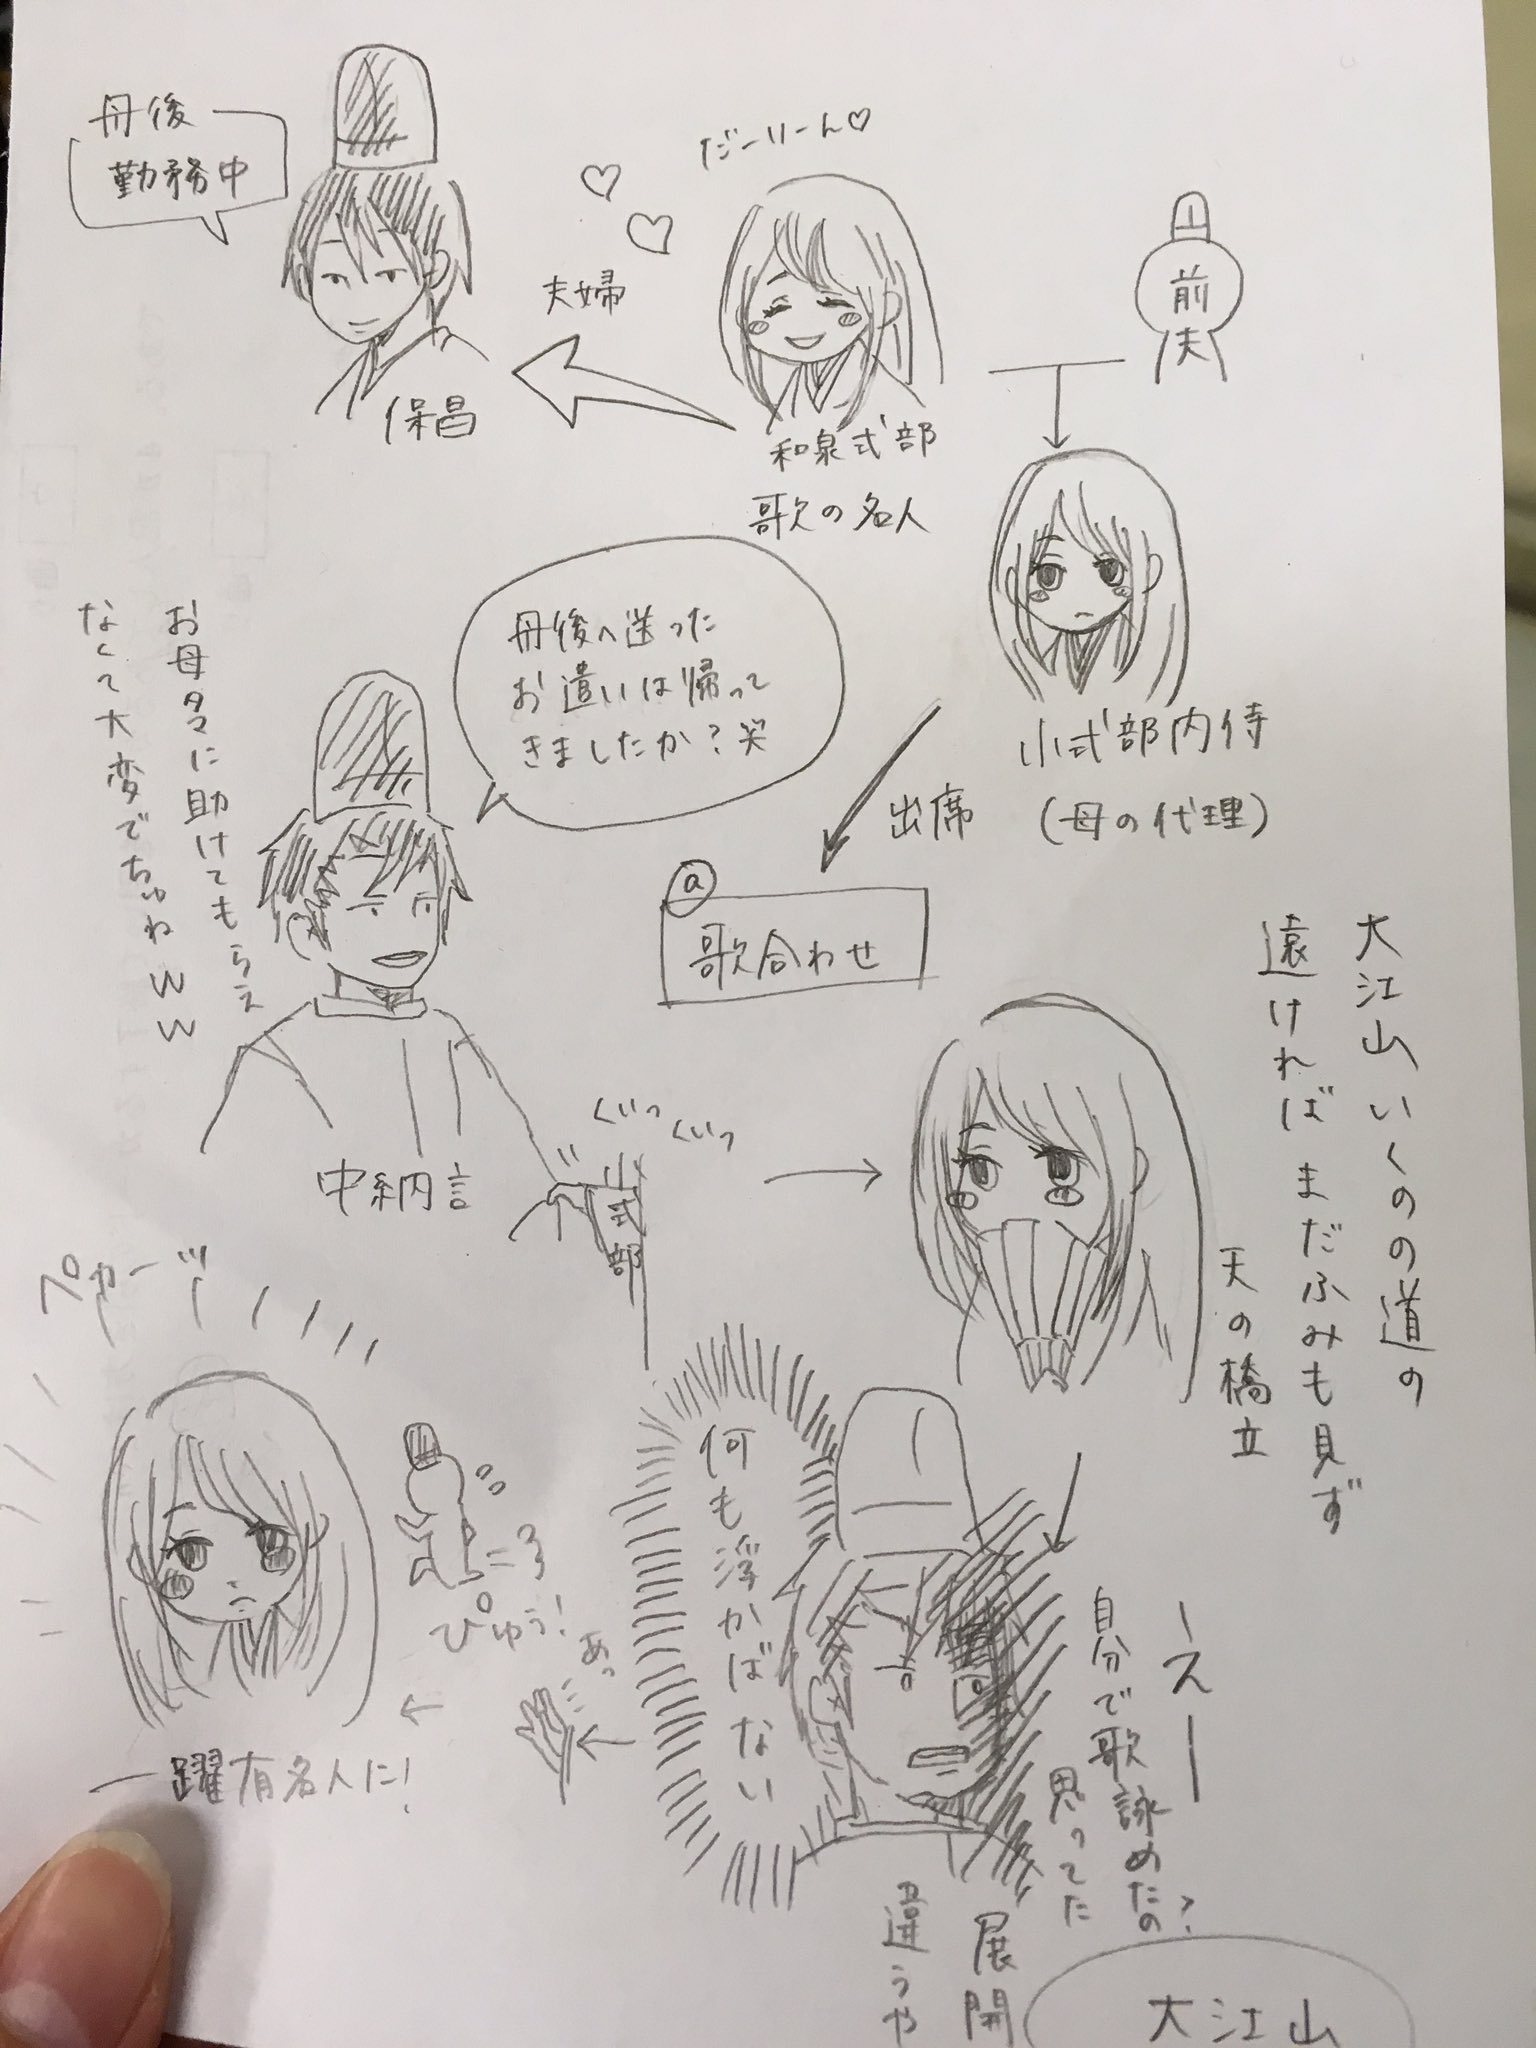 丹後
勤務中
だーりーん♡
夫婦
前
夫
保昌
和泉式部
歌の名人
小式部内侍
(母の代理)
出席
ⓐ
歌合わせ
丹後へ送った
お遣いは帰って
きましたか?笑
お母タマに助けてもらえ
なくて大変でちゅねww
中納言
ぐいっ
ぐいっ
小式部
大江山いくのの道の
遠ければまだふみも見ず
天の橋立
ーえー
自分で歌詠めたの?
思ってた
展開
違うや
何も浮かばない
あっ
ぴゅう!
プカーッ
一躍有名人に!
大江山